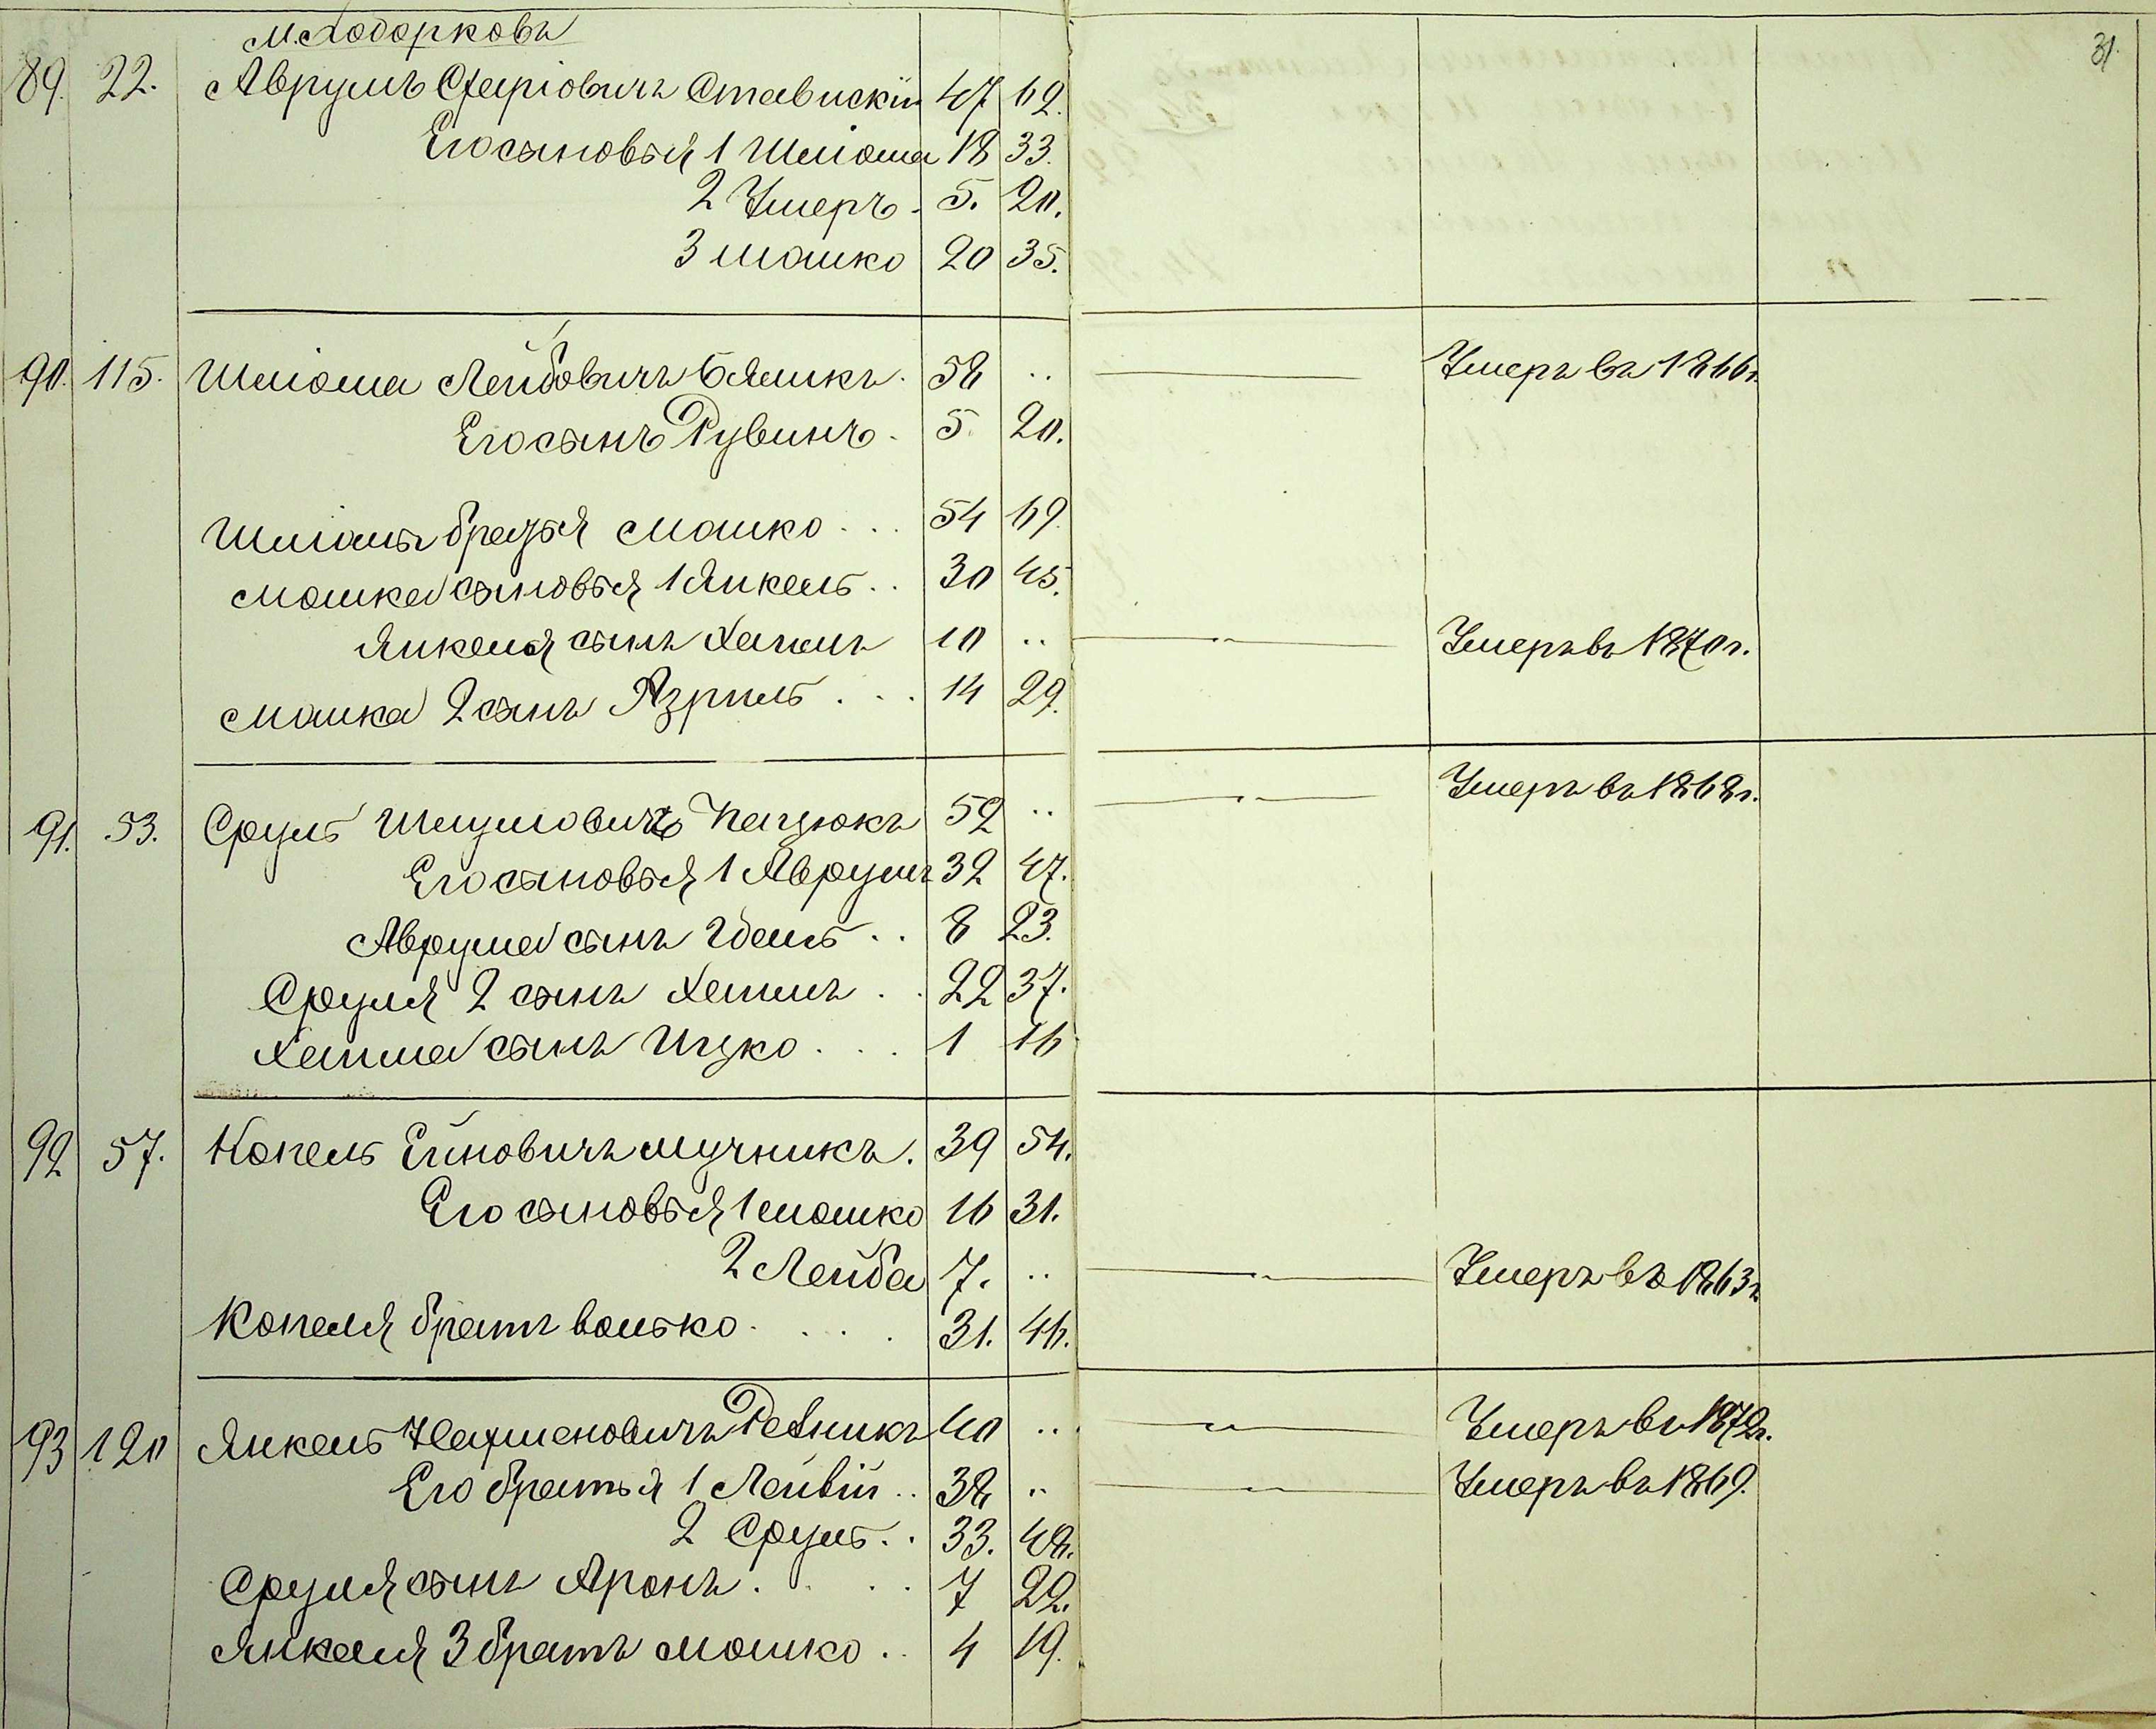 31.
М. Ходорковъ
89. 22. Аврумъ Сфаріовичъ Ставискій 47 62.
Его сыновья 1 Шліома 18 33.
2 Умеръ. 5. 20.
3 Мошко 20 35.
90. 115. Шліома Лейбовичъ Блямикъ. 58 .. Умеръ въ 1866г.
Его сынъ Рувинъ. 5 20.
Шліомы братья Мошко ... 54 69.
Мошка сыновья 1 Янкель.. 30 45.
Янкеля сынъ Хаимъ 10 .. Умеръ въ 1870г.
Мошка 2 сынъ Азриль ... 14 29.
91. 53. Сруль Шмулиовичъ Кацюкъ 52 .. Умеръ въ 1868г.
Его сыновья 1 Аврумъ 32 47.
Аврума сынъ Удель .. 8 23.
Сруля 2 сынъ Хаимъ .. 22 37.
Хаима сынъ Ицко ... 1 16
92 57. Копель Ейновичъ Мучникъ. 39 54.
Его сыновья 1 Мошко 16 31.
2 Лейба 7. .. Умеръ въ 1863г
Копеля братъ Волько ..... 31. 46.
93 120 Янкель Нахмановичъ Резникъ 40 .. Умеръ въ 1872г.
Его братья 1 Лейвій .. 38 .. Умеръ въ 1869.
2 Сруль.. 33. 48.
Сруля сынъ Аронъ .... 7 22.
Янкеля 3 братъ Мошко .. 4 19.